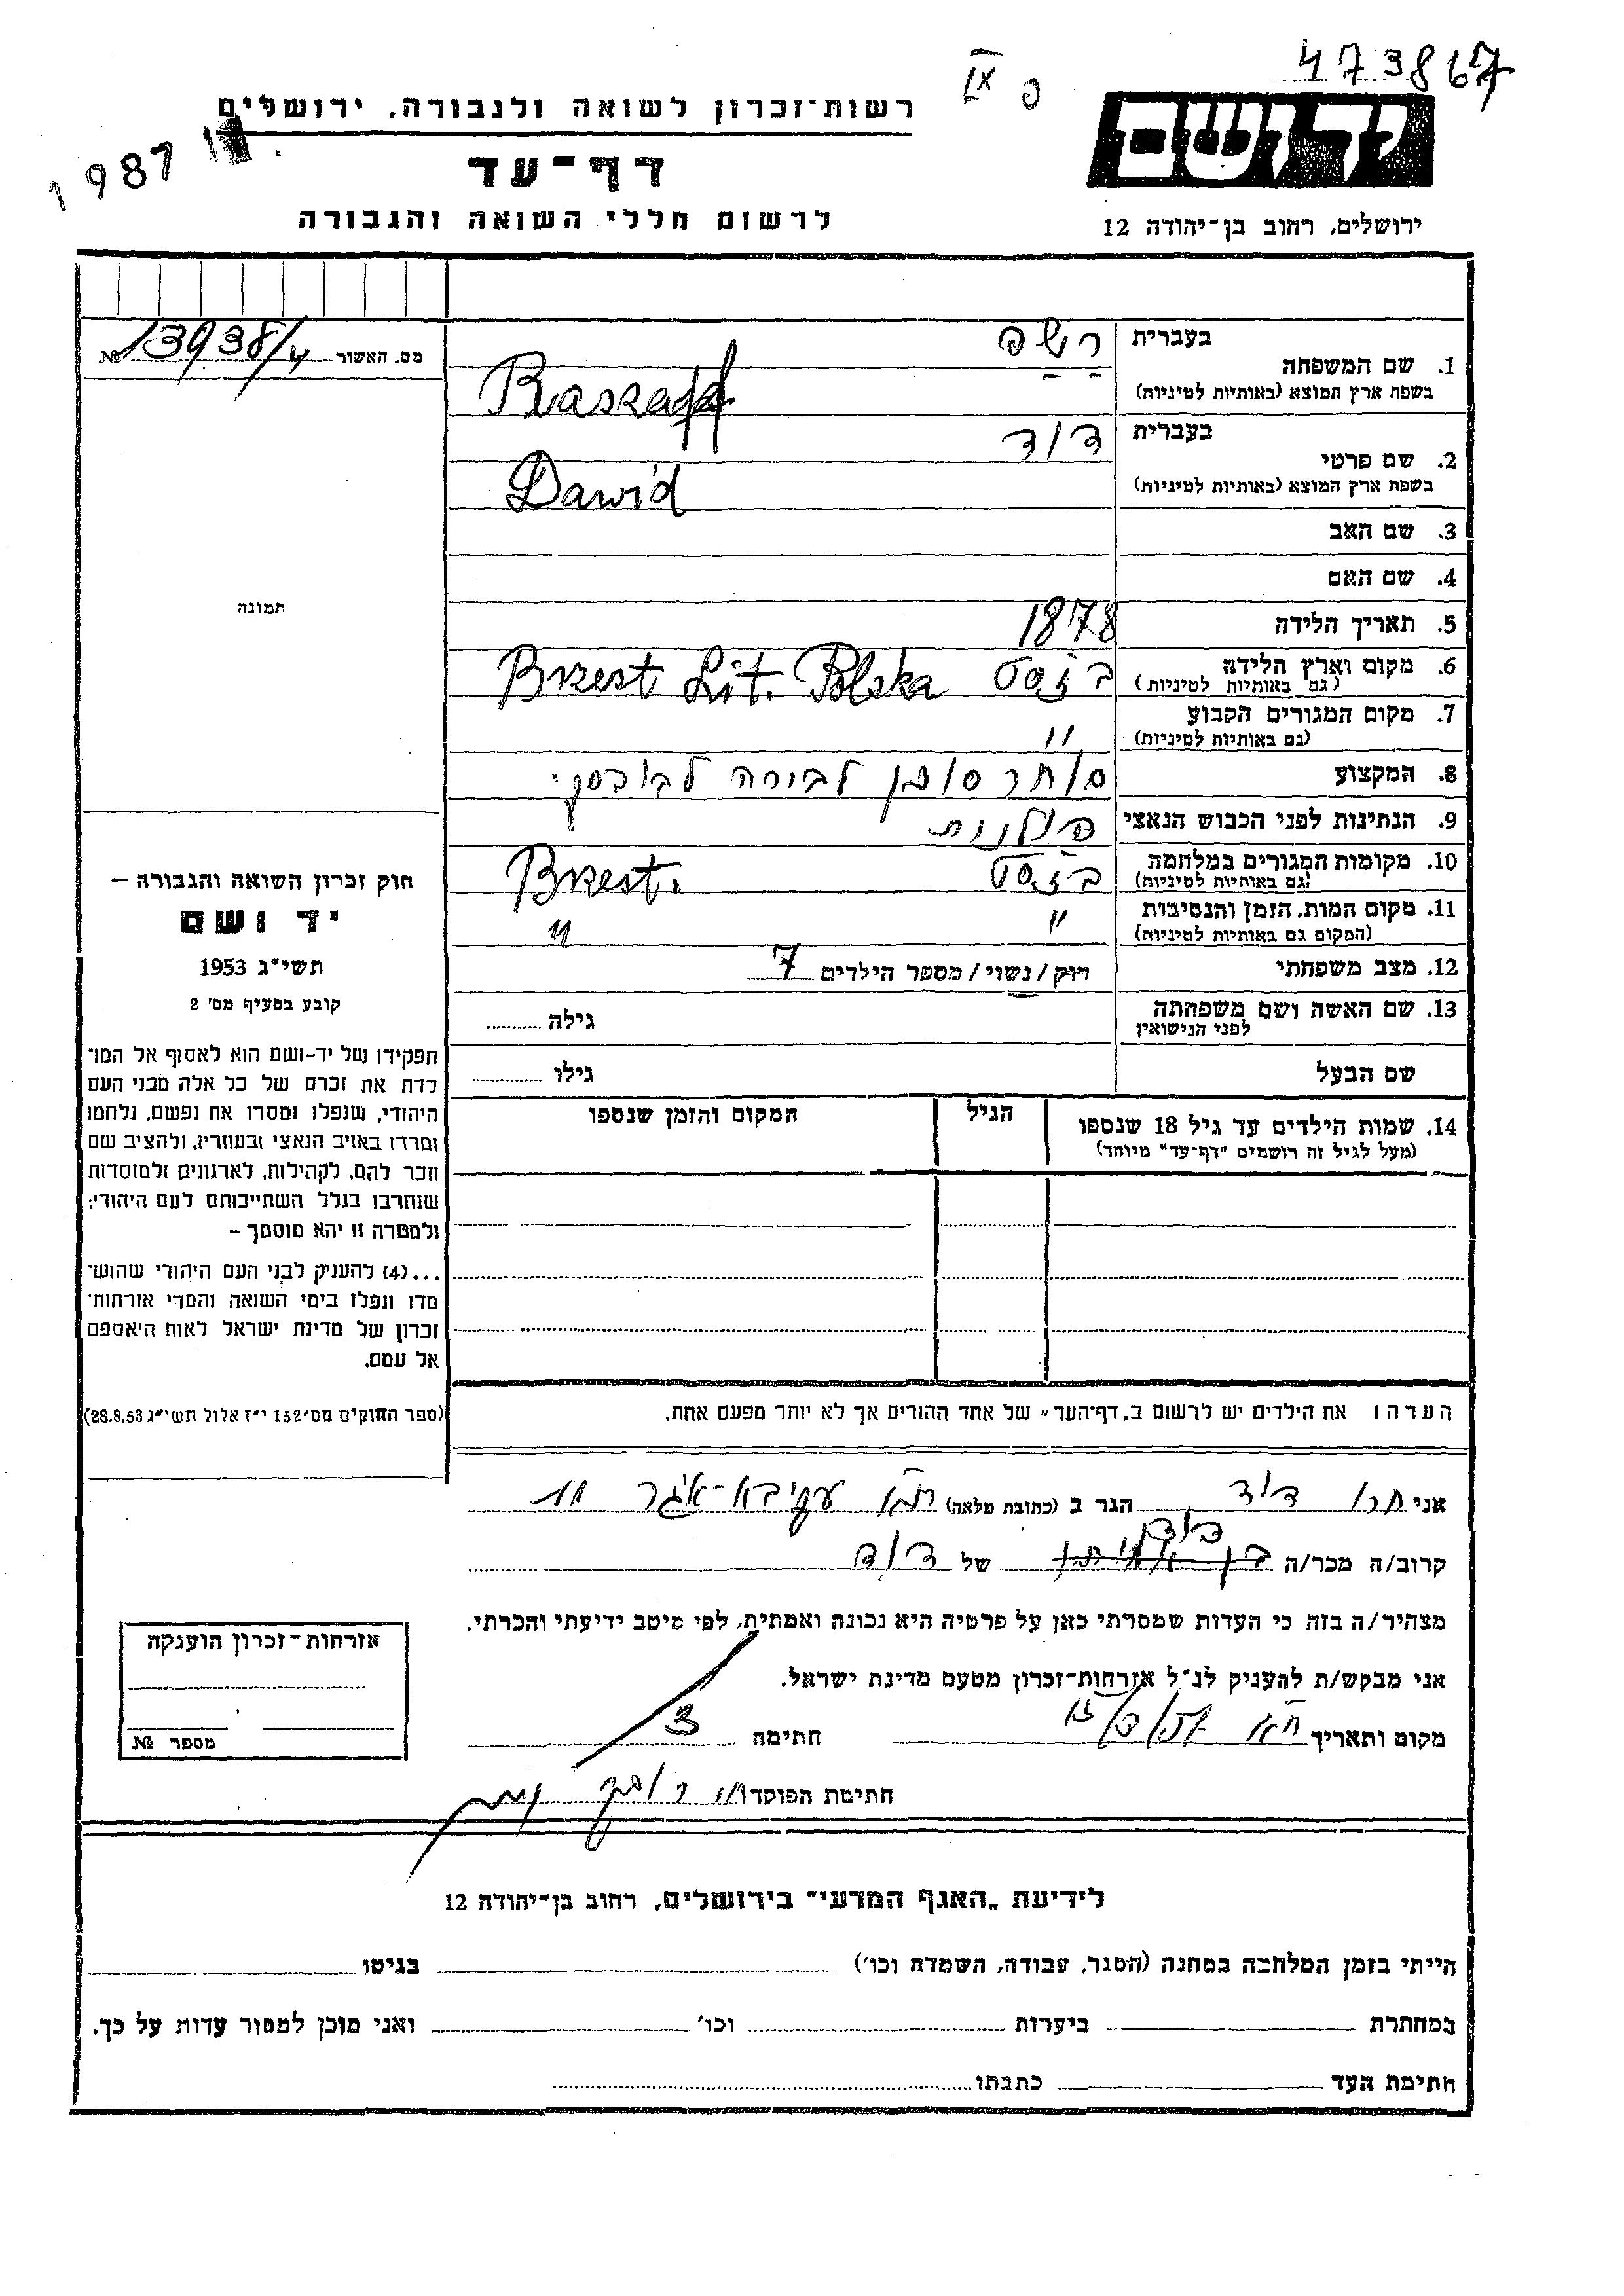 473867
IX פ
1987
יד ושם
רשות־זכרון לשואה ולגבורה, ירושלים
דף־עד
לרשום חללי השואה והגבורה
ירושלים, רחוב בן־יהודה 12
מס. האשור № 13938/4
1. שם המשפחה
בעברית רשף
בשפת ארץ המוצא (באותיות לטיניות)
2. שם פרטי
בעברית דוד
בשפת ארץ המוצא (באותיות לטיניות) Dawid
3. שם האב
4. שם האם
5. תאריך הלידה 1878
6. מקום וארץ הלידה
(גם באותיות לטיניות) Brzest Lit. Polska
7. מקום המגורים הקבוע "
(גם באותיות לטיניות)
8. המקצוע סוחר סוכן
9. הנתינות לפני הכבוש הנאצי פולנית
10. מקומות המגורים במלחמה
(גם באותיות לטיניות) Brzest.
11. מקום המות, הזמן והנסיבות " "
(המקום גם באותיות לטיניות)
12. מצב משפחתי רווק/נשוי/מספר הילדים 7
13. שם האשה ושם משפחתה
לפני הנישואין
גילה
שם הבעל גילו
14. שמות הילדים עד גיל 18 שנספו הגיל המקום והזמן שנספו
(מעל לגיל זה רושמים "דף־עד" מיוחד)
תמונה
חוק זכרון השואה והגבורה —
יד ושם
תשי"ג 1953
קובע בסעיף מס' 2
תפקידו של יד-ושם הוא לאסוף אל המו־
לדת את זכרם של כל אלה מבני העם
היהודי, שנפלו ומסרו את נפשם, נלחמו
ומרדו באויב הנאצי ובעוזריו, ולהציב שם
וזכר להם, לקהילות, לארגונים ולמוסדות
שנחרבו בגלל השתייכותם לעם היהודי;
ולמטרה זו יהא מוסמך —
...(4) להעניק לבני העם היהודי שהוש־
מדו ונפלו בימי השואה והמרי אזרחות־
זכרון של מדינת ישראל לאות היאספם
אל עמם.
(ספר החוקים מס' 132 י"ז אלול תשי"ג 28.8.53)
הערה: את הילדים יש לרשום ב"דף־העד" של אחד ההורים אך לא יותר מפעם אחת.
אני דוד הגר ב (כתובת מלאה) ת"א עקיבא-איגר 11
קרוב/ה מכר/ה של דוד
מצהיר/ה בזה כי העדות שמסרתי כאן על פרטיה היא נכונה ואמתית, לפי מיטב ידיעתי והכרתי.
אני מבקש/ת להעניק לנ"ל אזרחות־זכרון מטעם מדינת ישראל.
מקום ותאריך ת"א חתימה
חתימת הפוקד
אזרחות־זכרון הוענקה
מספר №
לידיעת "האגף המדעי" בירושלים, רחוב בן־יהודה 12
הייתי בזמן המלחמה במחנה (הסגר, עבודה, השמדה וכו') בגיטו
במחתרת ביערות וכו' ואני מוכן למסור עדות על כך.
חתימת העד כתבתו